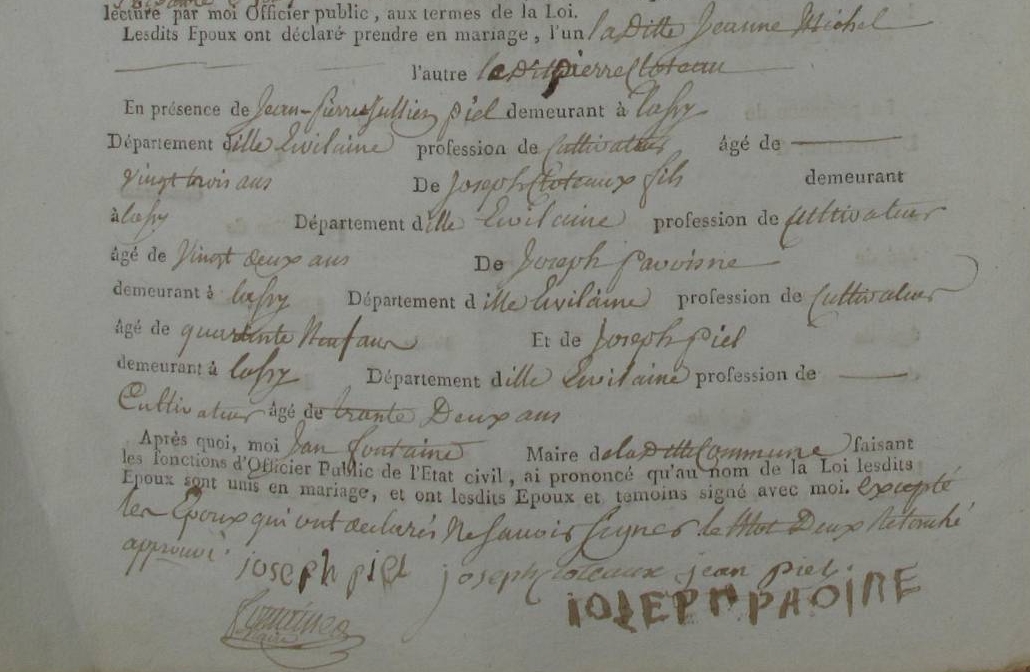 lecture par moi Officier public, aux termes de la Loi.
Lesdits Epoux ont déclaré prendre en mariage, l'un la Ditte Jeanne Michel
l'autre le Dit pierre Cloteau
En présence de Jean-pierre Jullien piel demeurant à lassy
Département dille Evilaine profession de Cultivateur âgé de
vingt trois ans De Joseph Cloteaux fils demeurant
à lassy Département dille Evilaine profession de Cultivateur
âgé de Vingt deux ans De Joseph pavoisne
demeurant à lassy Département dille Evilaine profession de Cultivateur
âgé de quarante Neuf ans Et de Joseph piel
demeurant à lassy Département dille Evilaine profession de
Cultivateur âgé de trante Deux ans
Après quoi, moi Jan fontaine Maire de la Ditte Commune faisant
les fonctions d'Officier Public de l'Etat civil, ai prononcé qu'au nom de la Loi lesdits
Epoux sont unis en mariage, et ont lesdits Epoux et temoins signé avec moi. Excepté
les Epoux qui ont declarés Ne savoir Signer le Mot Deux Retouché
approuvé
joseph piel joseph Cloteaux jean piel
fontaine
maire
IOSEPH PAOINE